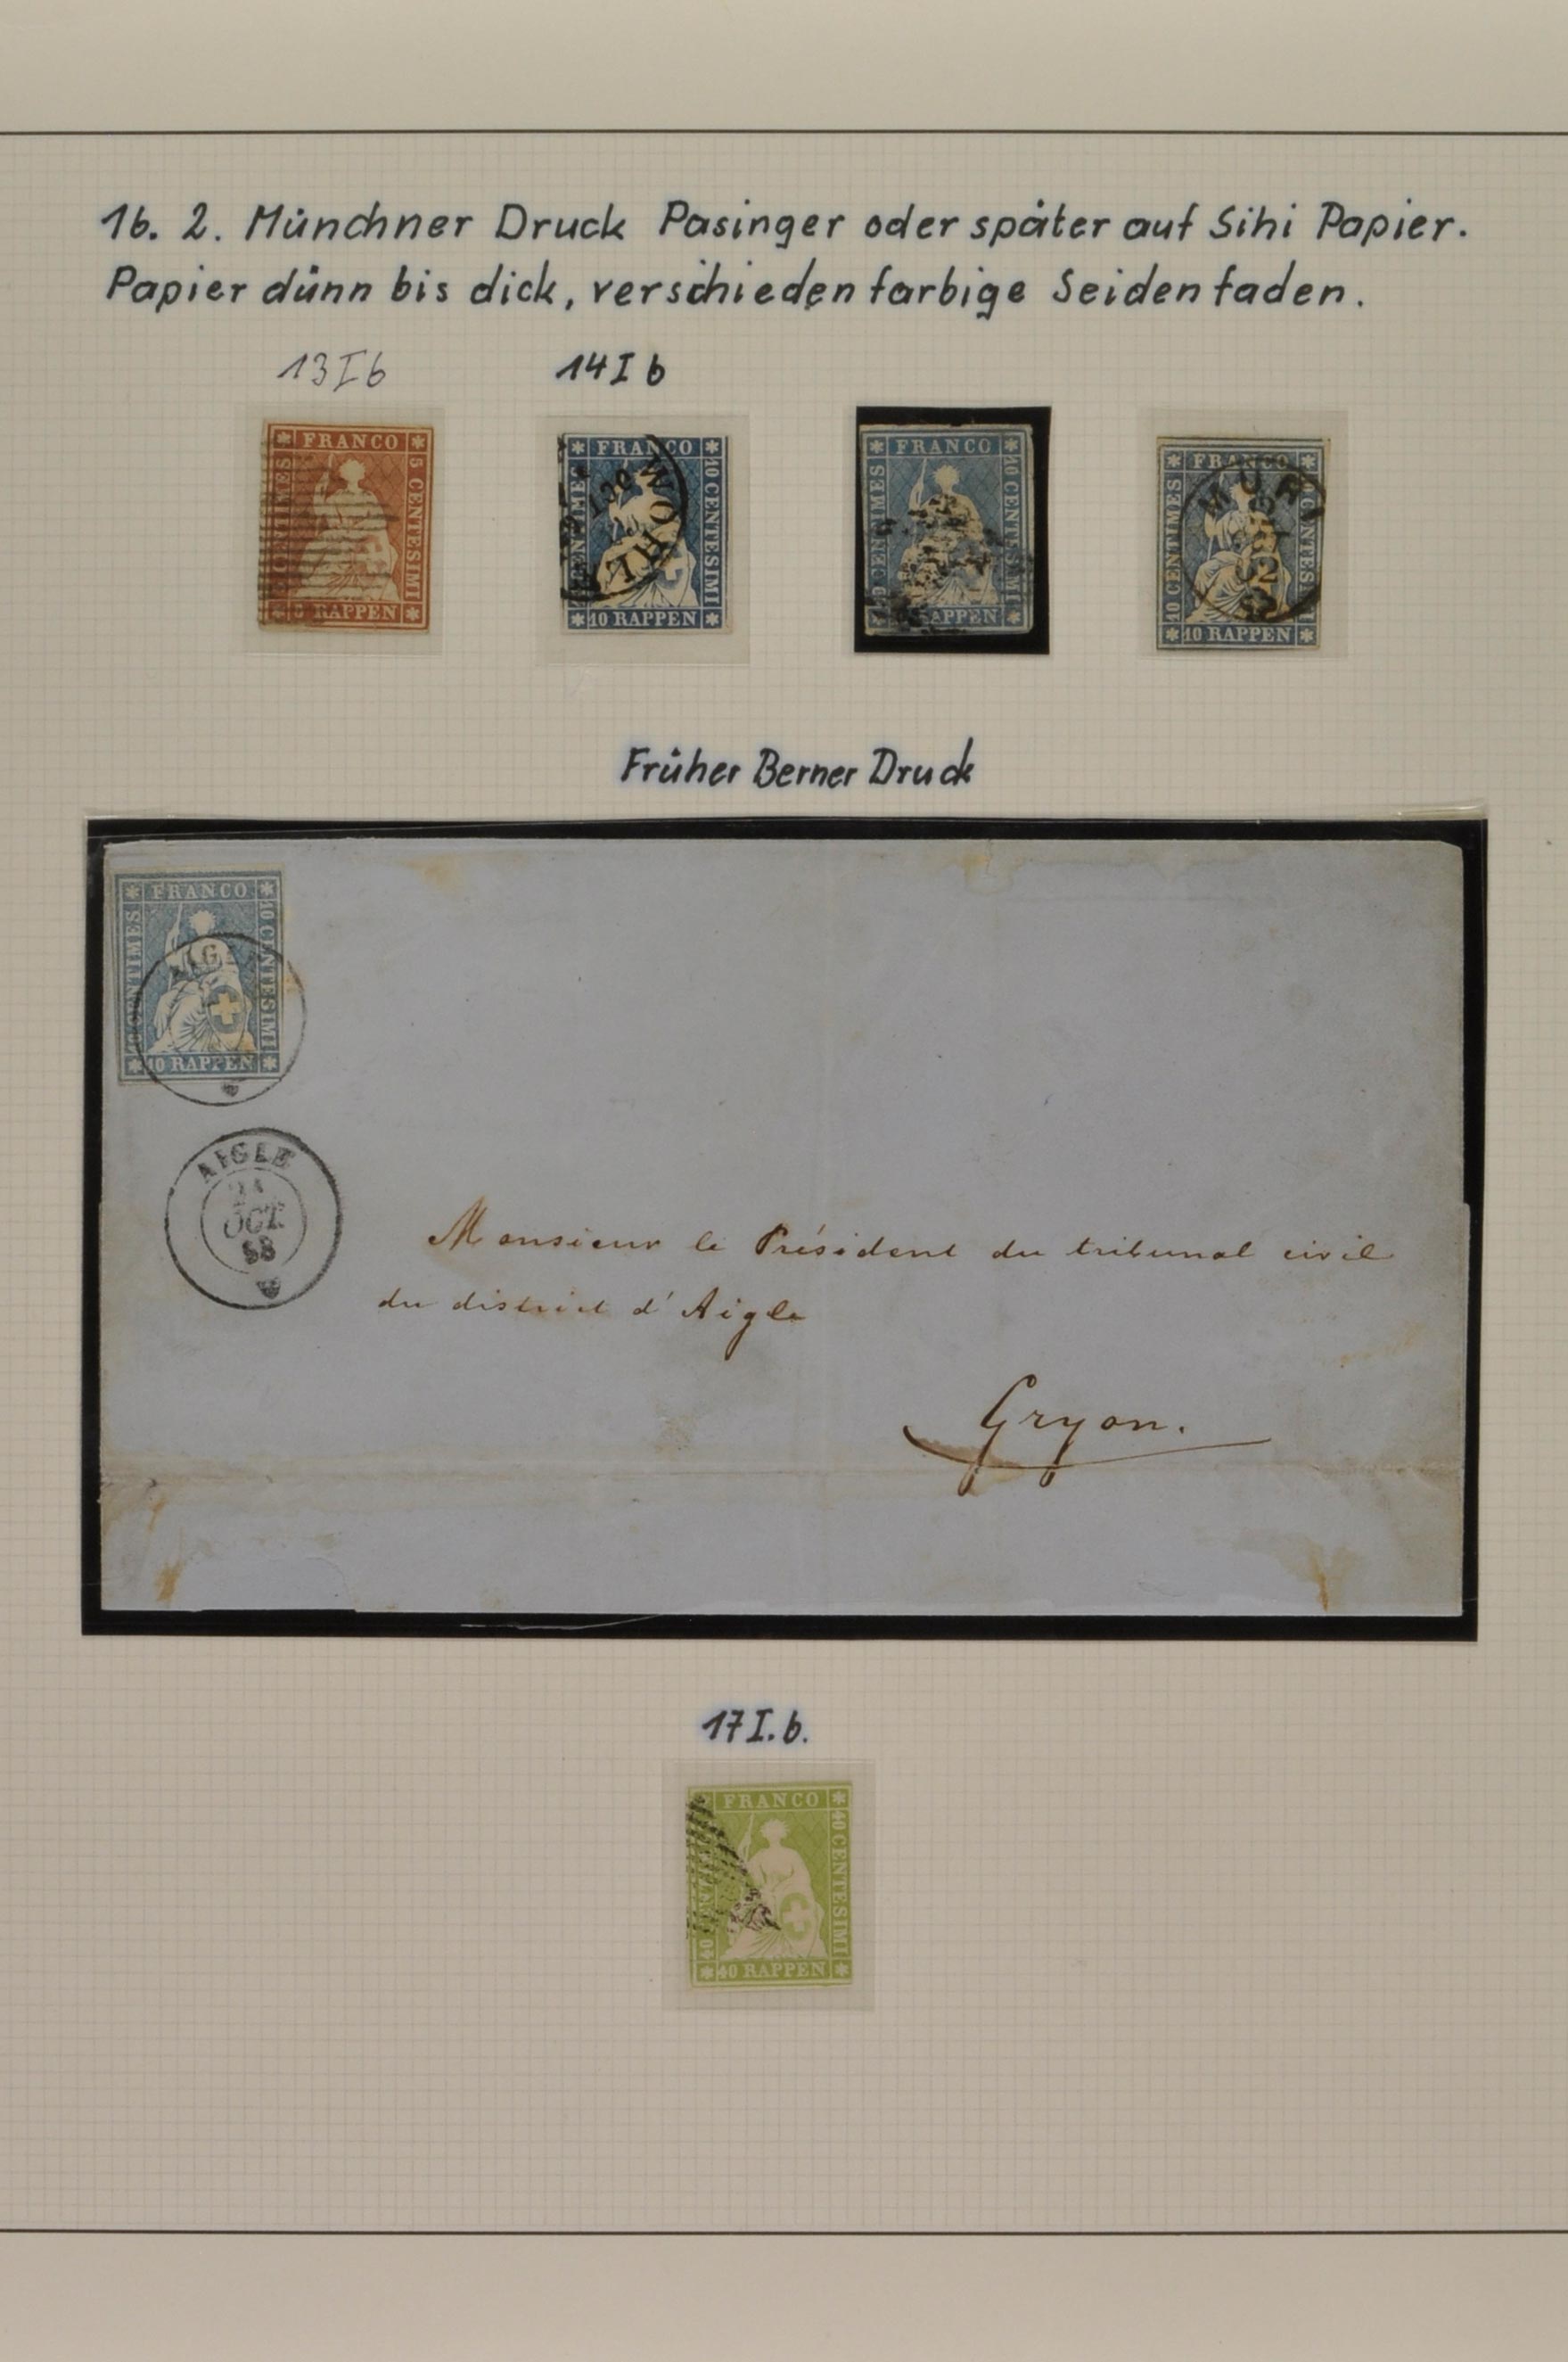 16. 2. Münchner Druck Pasinger oder später auf Sihi Papier.
Papier dünn bis dick, verschieden farbige Seidenfaden.
13Ib
14I b
FRANCO
5 CENTESIMI
RAPPEN
FRANCO
10 CENTESIMI
10 RAPPEN
WOHL
FRANCO
10 CENTIMES
10 CENTESIMI
FRANCO
10 CENTIMES
10 RAPPEN
MUR
Früher Berner Druck
FRANCO
10 CENTIMES
10 CENTESIMI
10 RAPPEN
AIGLE
OCT.
58
Monsieur le Président du tribunal civil
du district d'Aigle
Gryon.
17 I. b.
FRANCO
40 CENTESIMI
40
40 RAPPEN